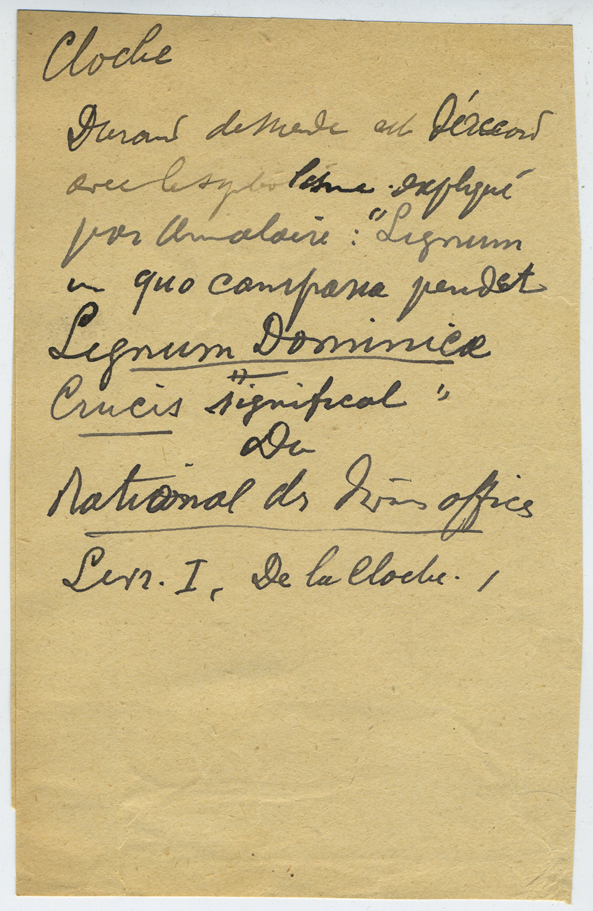 Cloche
Durand de Mende est d'accord
avec le symbolisme expliqué
par Amalaire : "Lignum
in quo campana pendet
Lignum Dominicæ
Crucis significat "
Du
Rational des Divins offices
Livr. I, De la Cloche. /